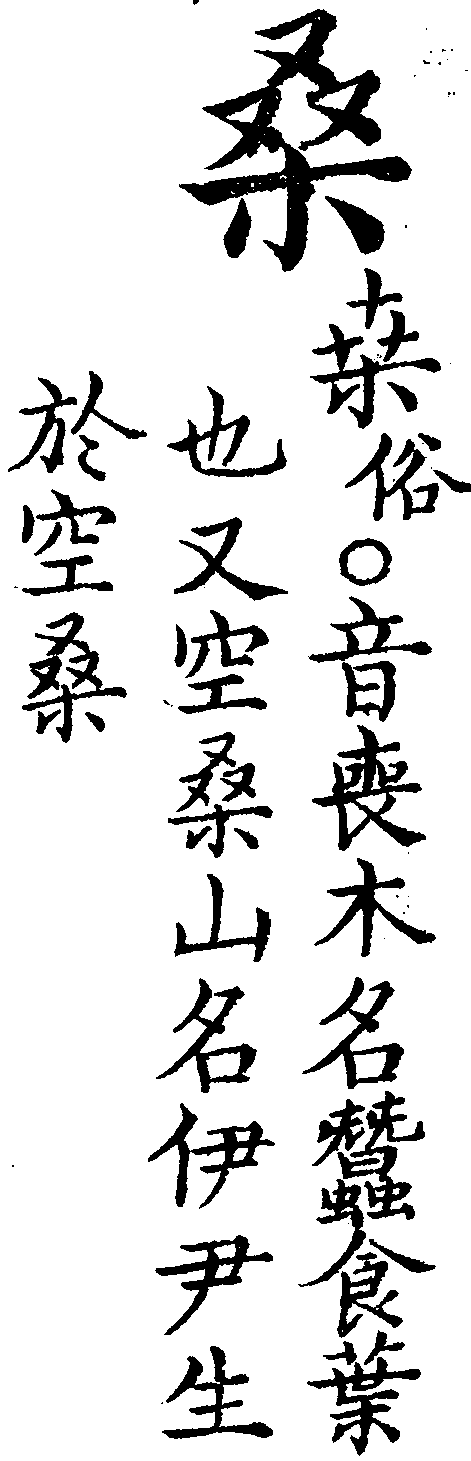 桑
桒俗○音喪木名蠶食葉
也又空桑山名伊尹生
於空桑